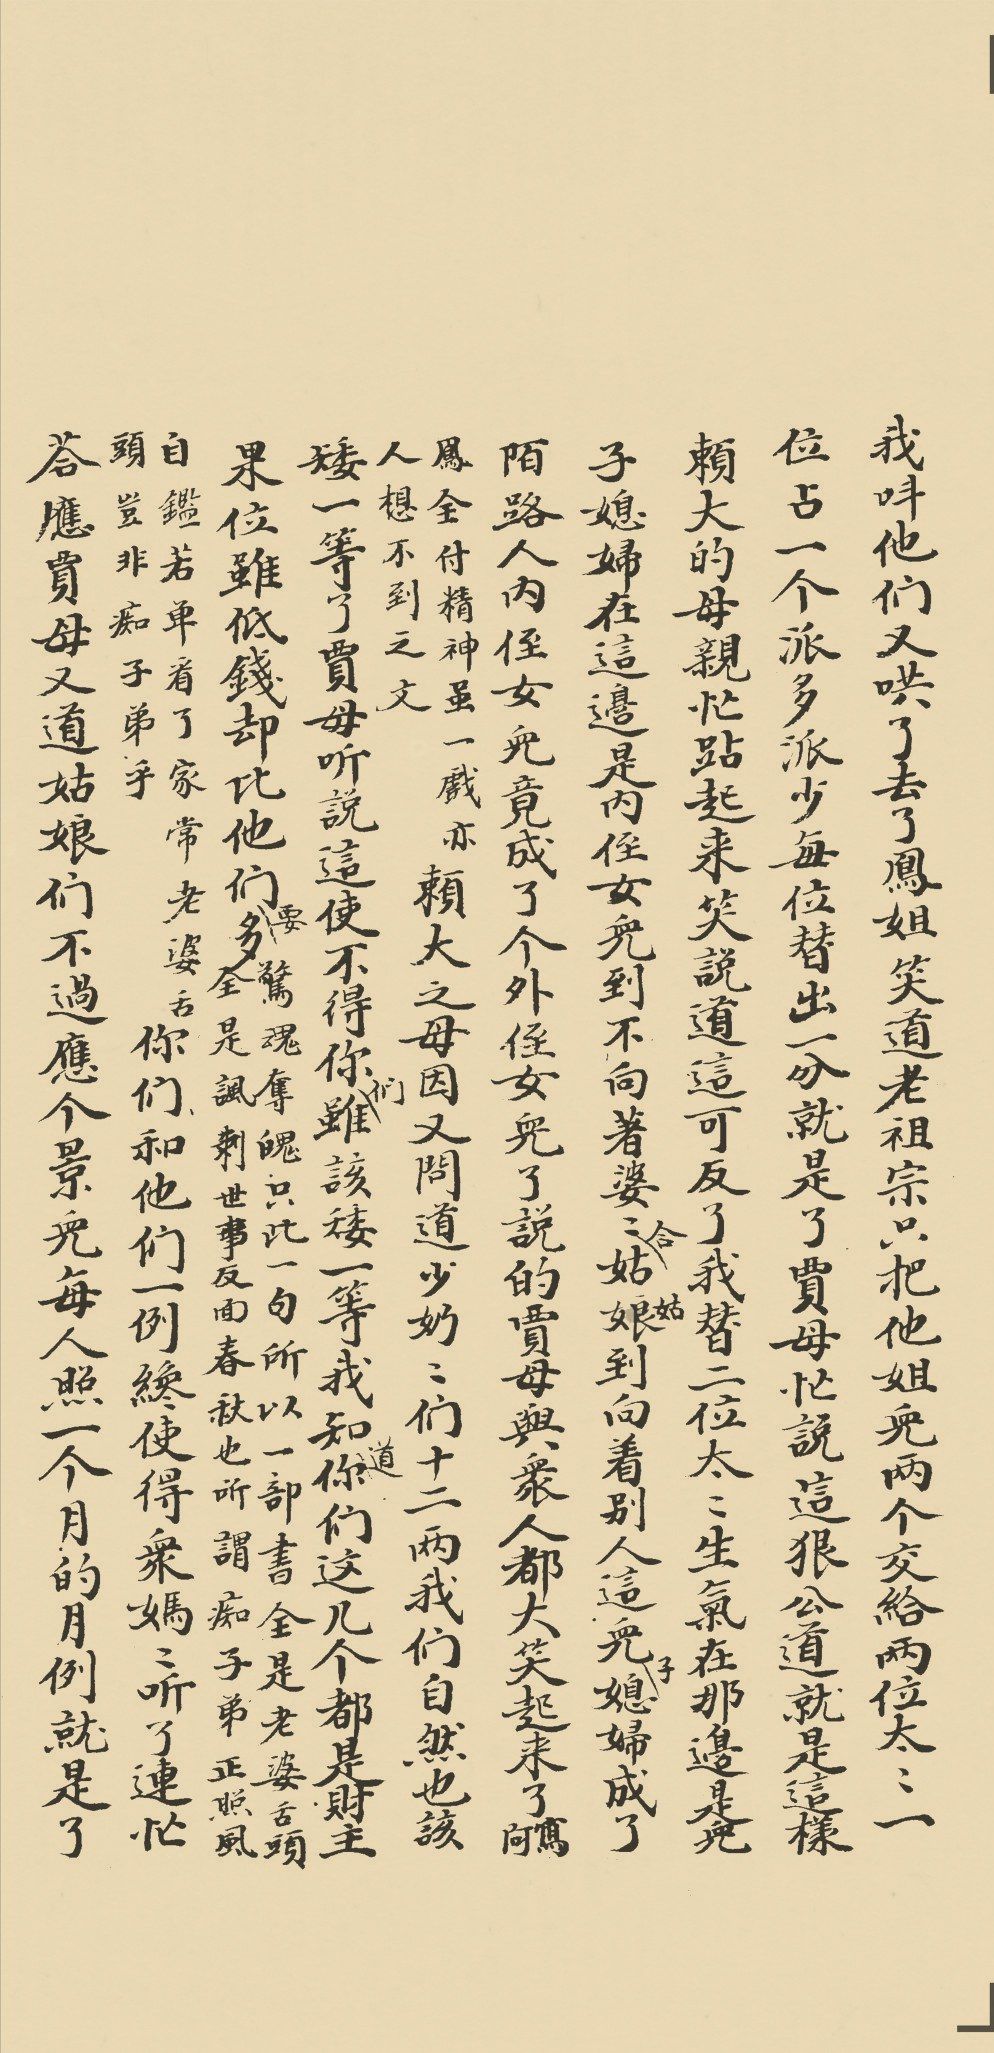 我呌他们又哄了去了鳳姐笑道老祖宗只把他姐兒两个交給两位太〻一
位占一个派多派少每位替出一分就是了賈母忙說這狠公道就是這樣
頼大的母親忙跕起来笑説道這可反了我替二位太〻生氣在那邉是兒
子媳婦在這邉是内侄女兒到不向著婆〻姑娘到向着别人這兒媳婦成了
合
姑
子
陌路人内侄女兒竟成了个外侄女兒了説的賈母與衆人都大笑起来了
寫
阿
鳳全付精神虽一戲亦
人想不到之文
頼大之母因又問道少奶〻们十二两我们自然也該
矮一等了賈母听説這使不得你雖該矮一等我知你们这几个都是財主
们
道
果位雖低錢却比他们多
要
驚魂奪魄只此一句所以一部書全是老婆舌頭
全是諷刺世事反面春秋也所謂痴子弟正照風
自鑑若单看了家常老婆舌
頭豈非痴子弟乎
你们和他们一例纔使得衆媽〻听了連忙
荅應賈母又道姑娘们不過應个景兒每人照一个月的月例就是了